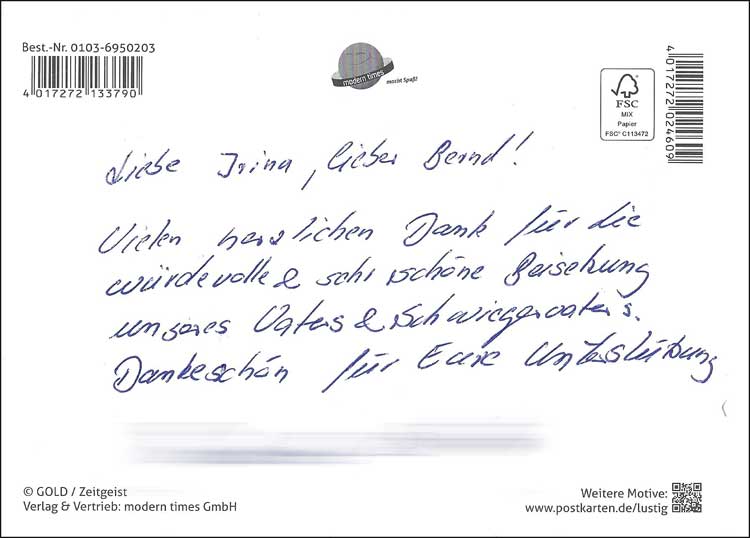 Best.-Nr. 0103-6950203
4 017272 133790
modern times
macht Spaß!
4 017272 024609
FSC
MIX
Papier
FSC® C113472
Liebe Irina, lieber Bernd!
Vielen herzlichen Dank für die
würdevolle & sehr schöne Beisetzung
unseres Vaters & Schwiegervaters.
Dankeschön für Eure Unterstützung
© GOLD / Zeitgeist
Verlag & Vertrieb: modern times GmbH
Weitere Motive:
www.postkarten.de/lustig